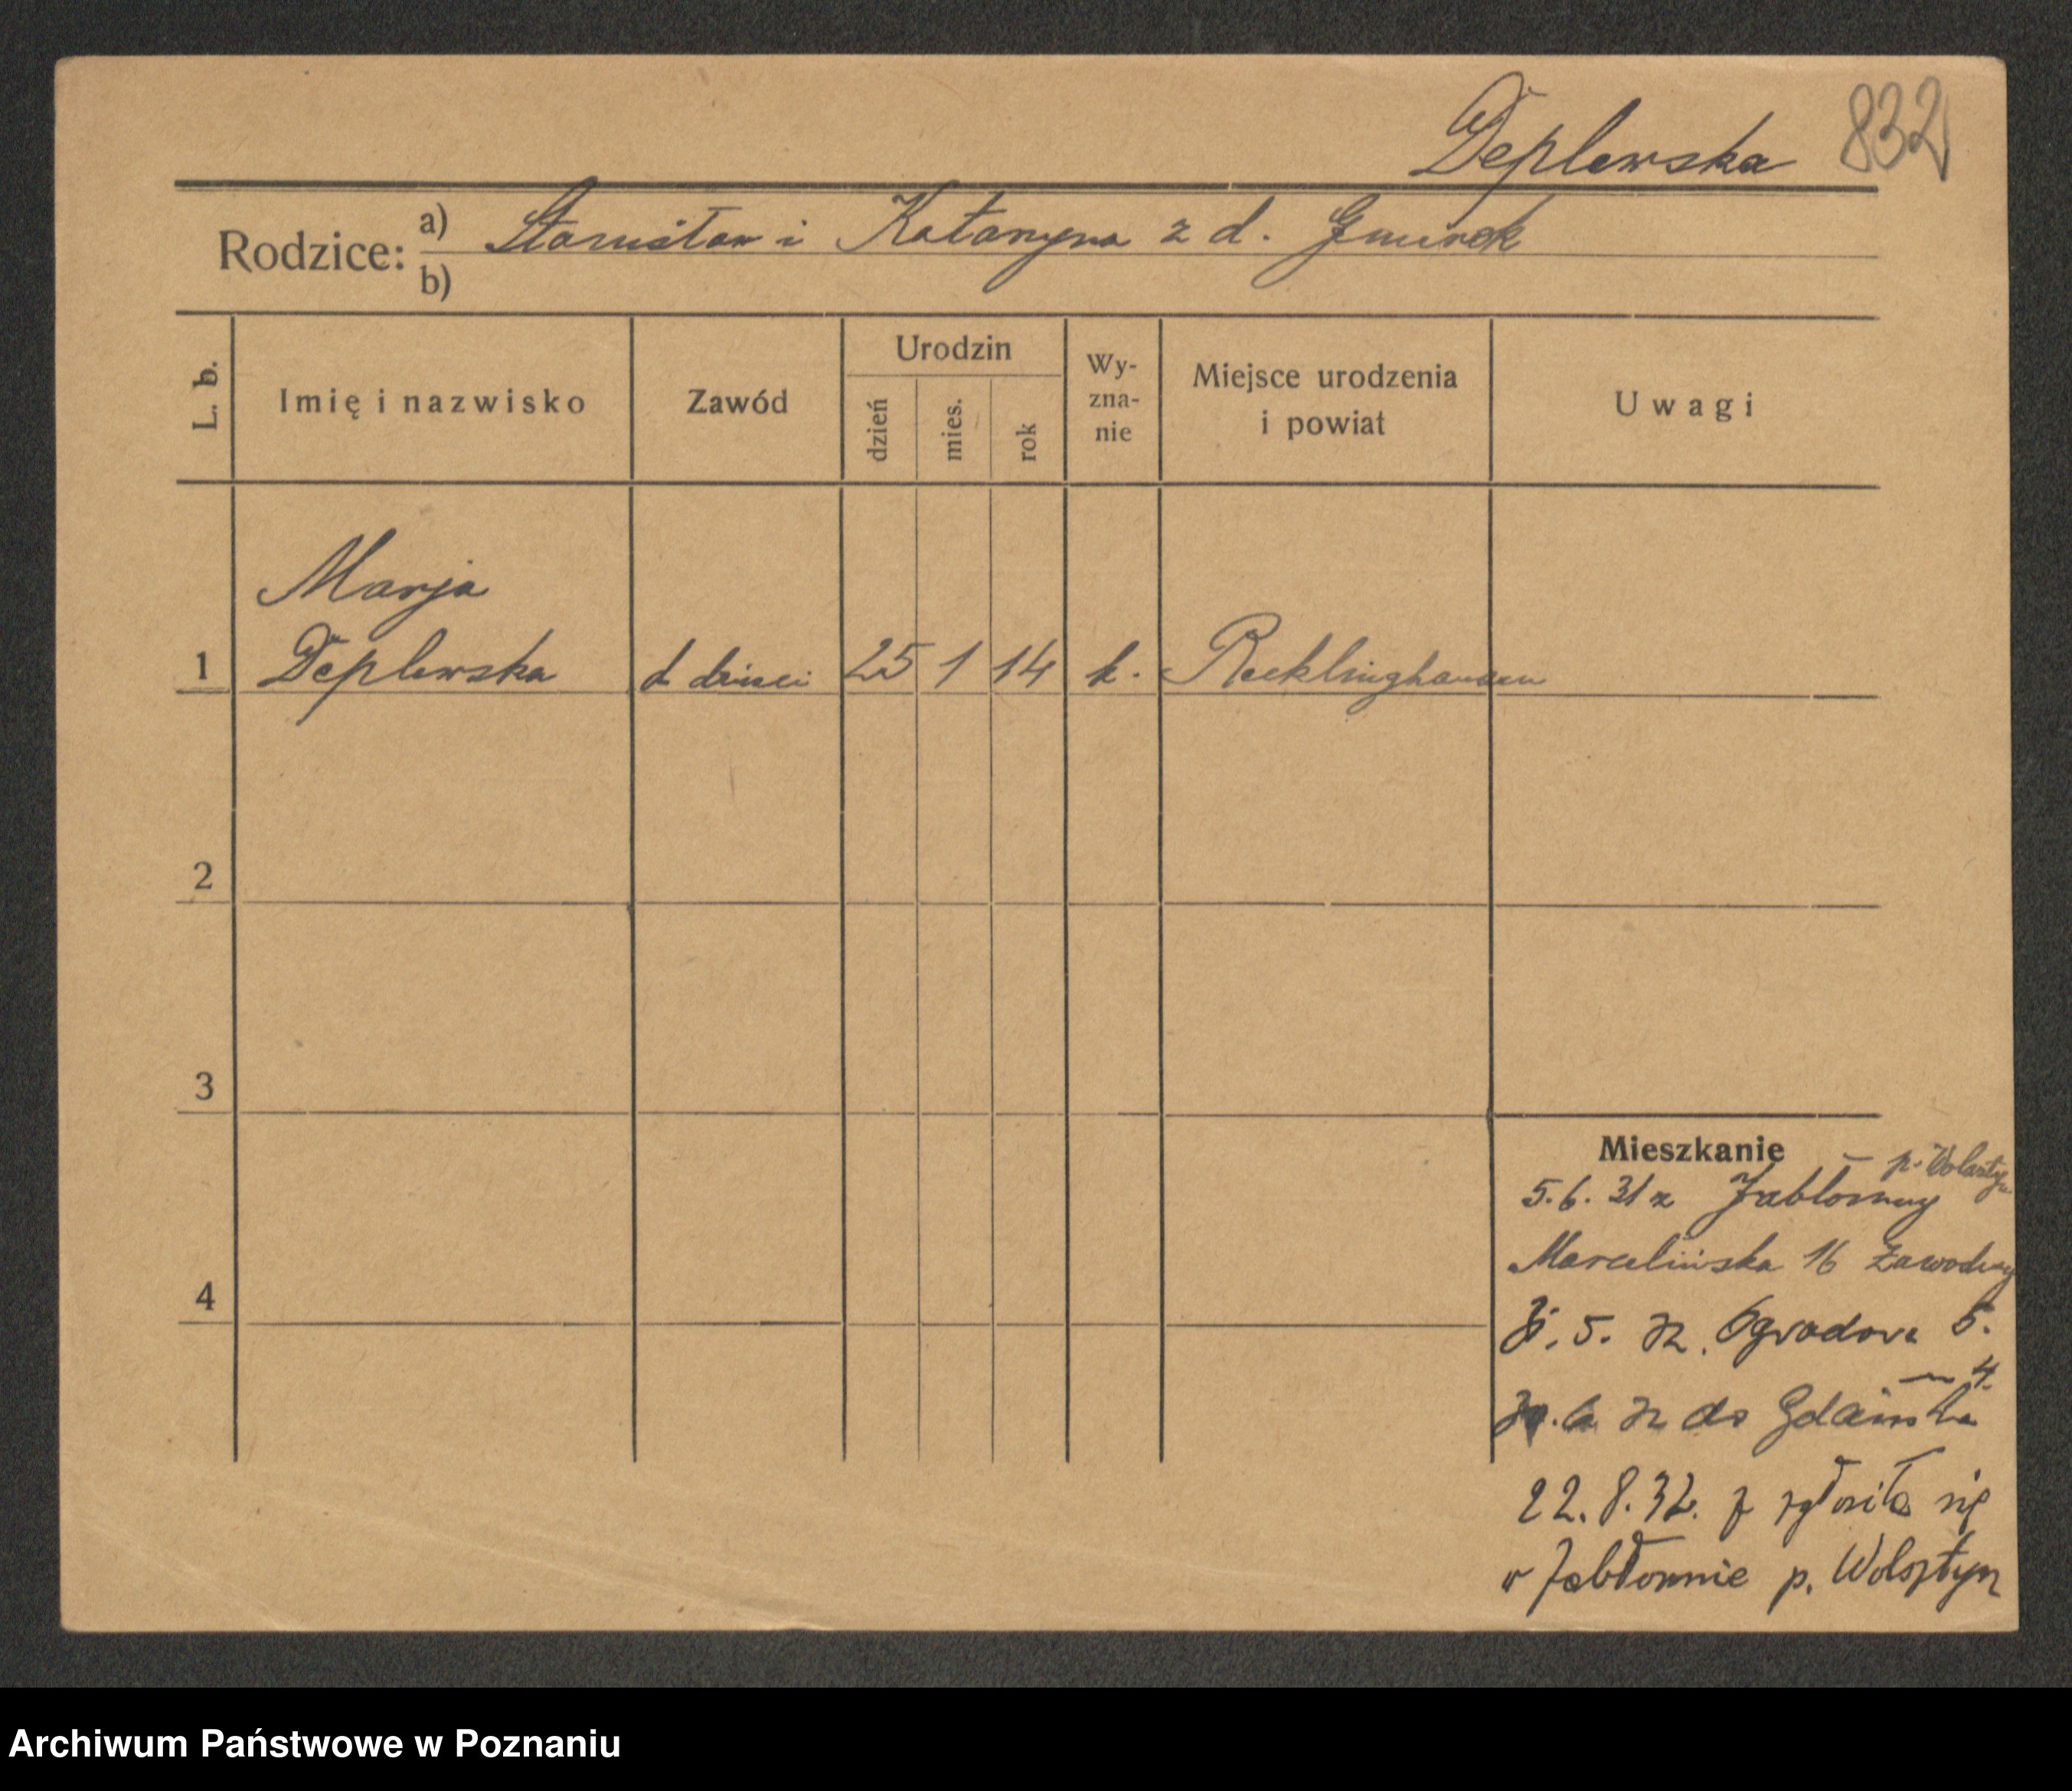 Deplewska 832
Rodzice: a) Stanisław i Katarzyna z d. Gmurek
b)
L. b. Imię i nazwisko Zawód Urodzin dzień mies. rok Wy-zna-nie Miejsce urodzenia i powiat Uwagi
Marja
1 Deplewska d dzieci 25 1 14 k. Recklinghausen
2
3
Mieszkanie
p. Wolsztyn
5.6.31 z Jabłonny
Marcelińska 16
4
5. 32. Ogrodowa
4.
32 do Gdańska
22.8.32. zgłosiła się
w Jabłonnie p. Wolsztyn
Archiwum Państwowe w Poznaniu